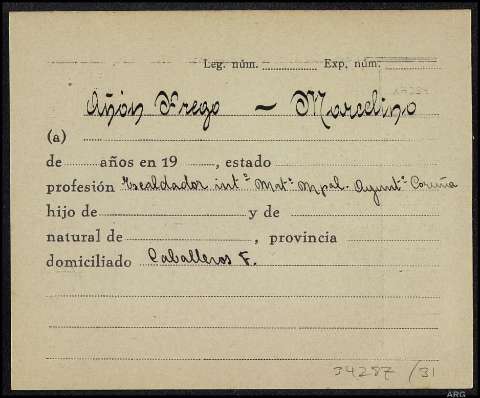 Leg. núm. Exp. núm.
Añón Frego - Marcelino
(a)
de años en 19 , estado
profesión Escaldador intº Matº Mpal. Ayuntº Coruña
hijo de y de
natural de , provincia
domiciliado Caballeros F.
34287/31
ARG